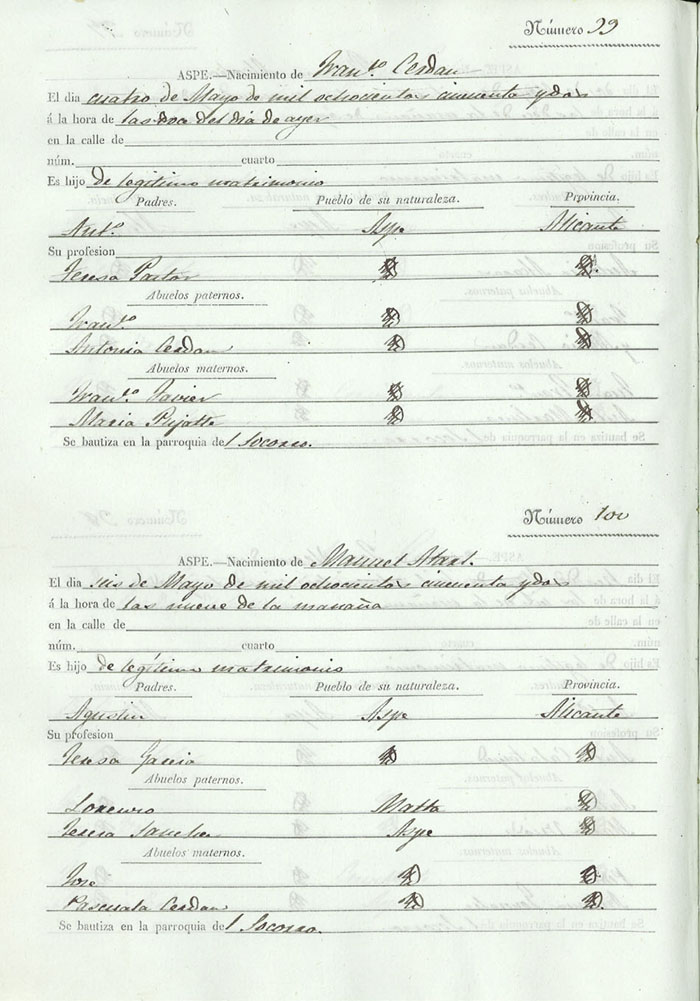 Número 99
ASPE.—Nacimiento de Franco. Cerdan
El dia cuatro de Mayo de mil ochocientos cincuenta y dos
á la hora de las doce del dia de ayer
en la calle de
núm. cuarto
Es hijo de legitimo matrimonio
Padres. Pueblo de su naturaleza. Provincia.
Anto. Aspe Alicante
Su profesion
Teresa Pastor
Abuelos paternos.
Franco.
Antonia Cerdan
Abuelos maternos.
Franco. Javier
Maria Pujalte
Se bautiza en la parroquia del Socorro.
Número 100
ASPE.—Nacimiento de Manuel
El dia seis de Mayo de mil ochocientos cincuenta y dos
á la hora de las nueve de la mañana
en la calle de
núm. cuarto
Es hijo de legítimo matrimonio
Padres. Pueblo de su naturaleza. Provincia.
Agustin Aspe Alicante
Su profesion
Teresa Garcia
Abuelos paternos.
Lorenzo
Teresa Sanchez Aspe
Abuelos maternos.
José
Pascuala Cerdan
Se bautiza en la parroquia del Socorro.